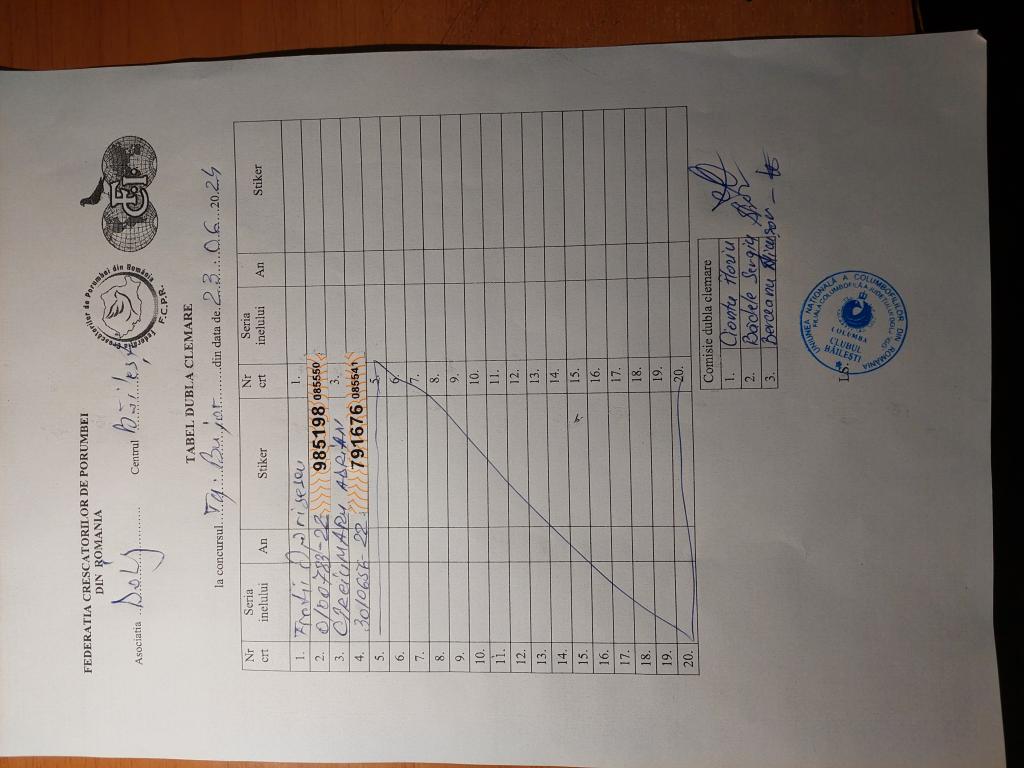 FEDERATIA CRESCATORILOR DE PORUMBEI
DIN ROMANIA
Federatia Crescatorilor de Porumbei din România
F.C.P.R.
FCI
Asociatia Dolj Centrul Băilești
TABEL DUBLA CLEMARE
la concursul Tg. Bujor din data de 23.06.2024
Nr crt Seria inelului An Stiker Nr crt Seria inelului An Stiker
1. Frații 1.
2. 0100783-22 985198 085550
3. ADRIAN 3.
4. 3010656-22 791676 085541
5. 5.
6. 6.
7. 7.
8. 8.
9. 9.
10. 10.
11. 11.
12. 12.
13. 13.
14. 14.
15. 15.
16. 16.
17. 17.
18. 18.
19. 19.
20. 20.
Comisie dubla clemare
1. Florin
2. Bădele Sergiu
3. Berceanu
L.S.
UNIUNEA NAȚIONALĂ A COLUMBOFILILOR DIN ROMANIA
COLUMBA
CLUBUL
BĂILEȘTI